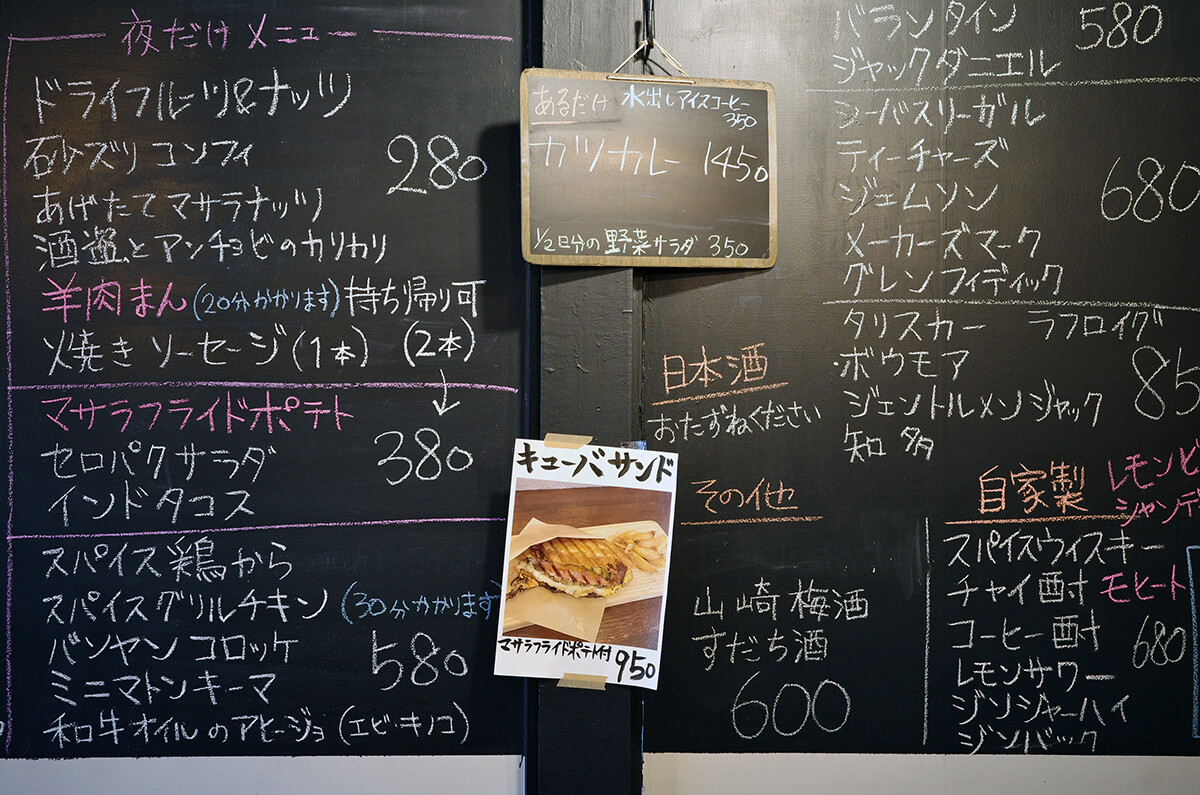 夜だけメニュー
ドライフルーツ&ナッツ
砂ズリコンフィ
280
あげたてマサラナッツ
酒盗とアンチョビのカリカリ
羊肉まん(20分かかります)持ち帰り可
焼きソーセージ(1本) (2本)
マサラフライドポテト
セロパクサラダ
380
インドタコス
スパイス鶏から
スパイスグリルチキン(30分かかります
バンヤンコロッケ
580
ミニマトンキーマ
和牛オイルのアヒージョ(エビ・キノコ)
あるだけ 水出しアイスコーヒー
350
カツカレー 1450
1/2日分の野菜サラダ 350
キューバサンド
マサラフライドポテト付 950
バランタイン
580
ジャックダニエル
シーバスリーガル
ティーチャーズ
ジェムソン
680
メーカーズマーク
グレンフィディック
タリスカー ラフロイグ
・ボウモア
85
ジェントルメンジャック
知多
日本酒
おたずねください
その他
山崎梅酒
すだち酒
600
自家製
レモンビ
シャンデ
スパイスウィスキー
チャイ酎 モヒート
コーヒー酎
680
レモンサワー
ジンジャーハイ
ジンバック